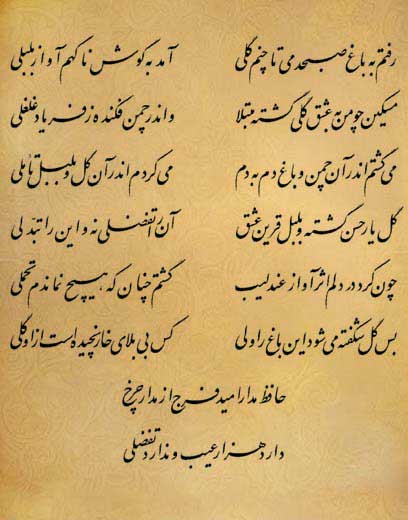 رفتم به باغ صبحدمی تا چنم گلی آمد به گوش ناگهم آواز بلبلی
مسکین چو من به عشق گلی گشته مبتلا واندر چمن فکنده ز فریاد غلغلی
می‌گشتم اندر آن چمن و باغ دم به دم می‌کردم اندر آن گل و بلبل تاملی
گل یار حسن گشته و بلبل قرین عشق آن را تفضلی نه و این را تبدلی
چون کرد در دلم اثر آواز عندلیب گشتم چنان که هیچ نماندم تحملی
بس گل شکفته می‌شود این باغ را ولی کس بی بلای خار نچیده است از او گلی
حافظ مدار امید فرج از مدار چرخ
دارد هزار عیب و ندارد تفضلی